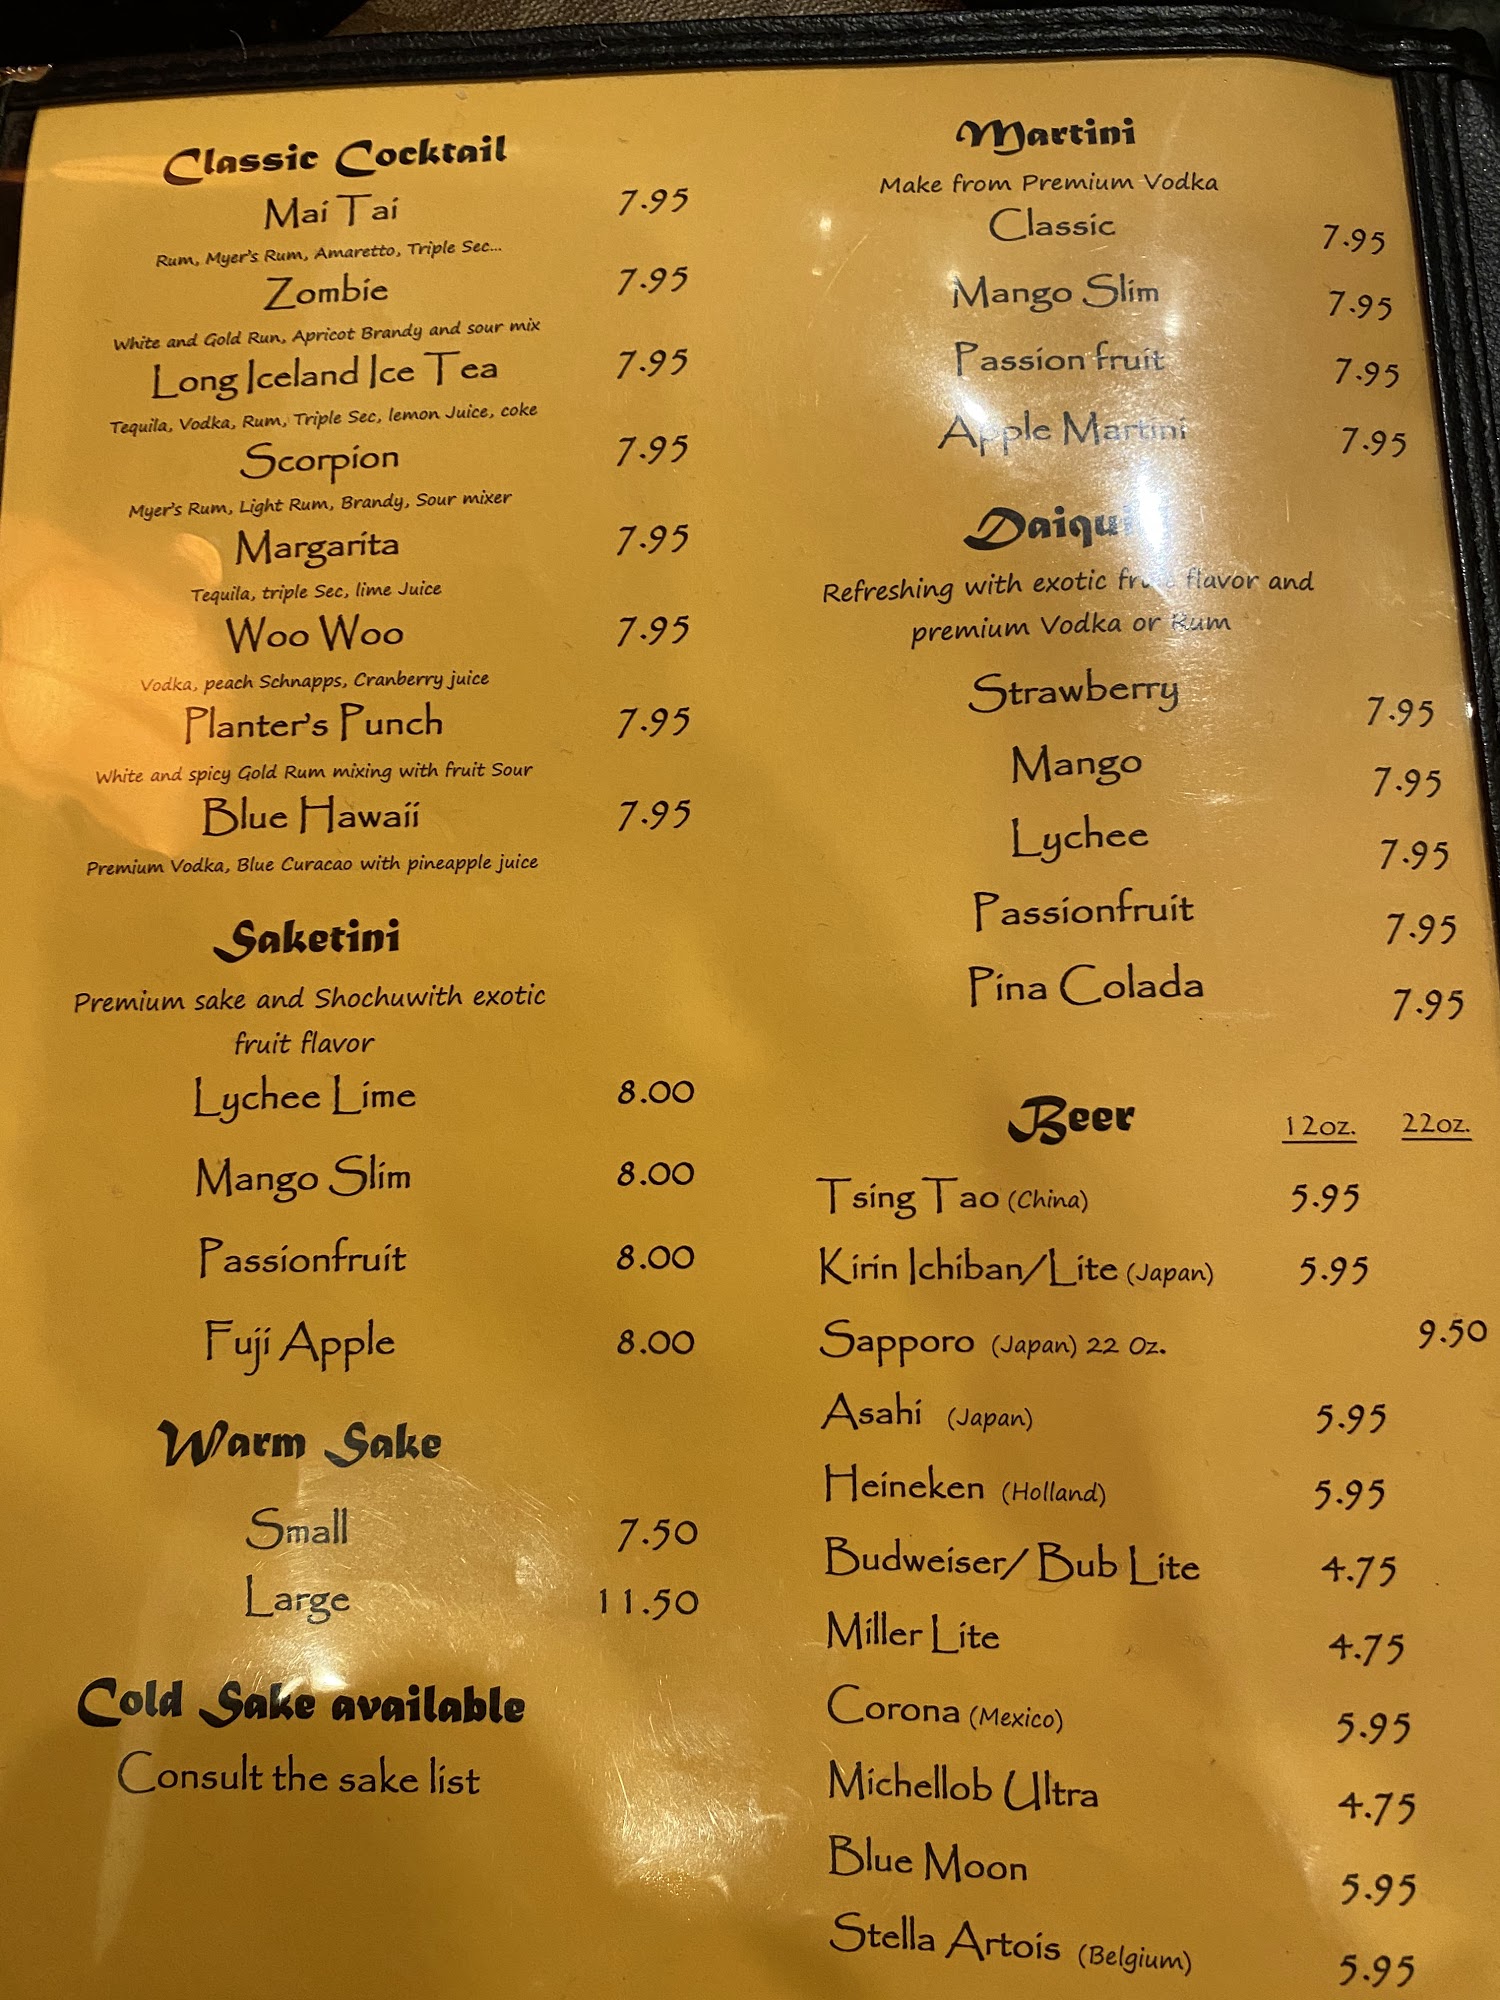 Classic Cocktail
Mai Tai 7.95
Rum, Myer's Rum, Amaretto, Triple Sec...
Zombie 7.95
White and Gold Run, Apricot Brandy and sour mix
Long Iceland Ice Tea 7.95
Tequila, Vodka, Rum, Triple Sec, lemon Juice, coke
Scorpion 7.95
Myer's Rum, Light Rum, Brandy, Sour mixer
Margarita 7.95
Tequila, triple Sec, lime Juice
Woo Woo 7.95
Vodka, peach Schnapps, Cranberry juice
Planter's Punch 7.95
White and spicy Gold Rum mixing with fruit Sour
Blue Hawaii 7.95
Premium Vodka, Blue Curacao with pineapple juice
Saketini
Premium sake and Shochuwith exotic
fruit flavor
Lychee Lime 8.00
Mango Slim 8.00
Passionfruit 8.00
Fuji Apple 8.00
Warm Sake
Small 7.50
Large 11.50
Cold Sake available
Consult the sake list
Martini
Make from Premium Vodka
Classic 7.95
Mango Slim 7.95
Passion fruit 7.95
Apple Martini 7.95
Refreshing with exotic flavor and
premium Vodka or Rum
Strawberry 7.95
Mango 7.95
Lychee 7.95
Passionfruit 7.95
Pina Colada 7.95
Beer 12oz. 22oz.
Tsing Tao (China) 5.95
Kirin Ichiban/Lite (Japan) 5.95
Sapporo (Japan) 22 Oz. 9.50
Asahi (Japan) 5.95
Heineken (Holland) 5.95
Budweiser/ Bub Lite 4.75
Miller Lite 4.75
Corona (Mexico) 5.95
Michellob Ultra 4.75
Blue Moon 5.95
Stella Artois (Belgium) 5.95